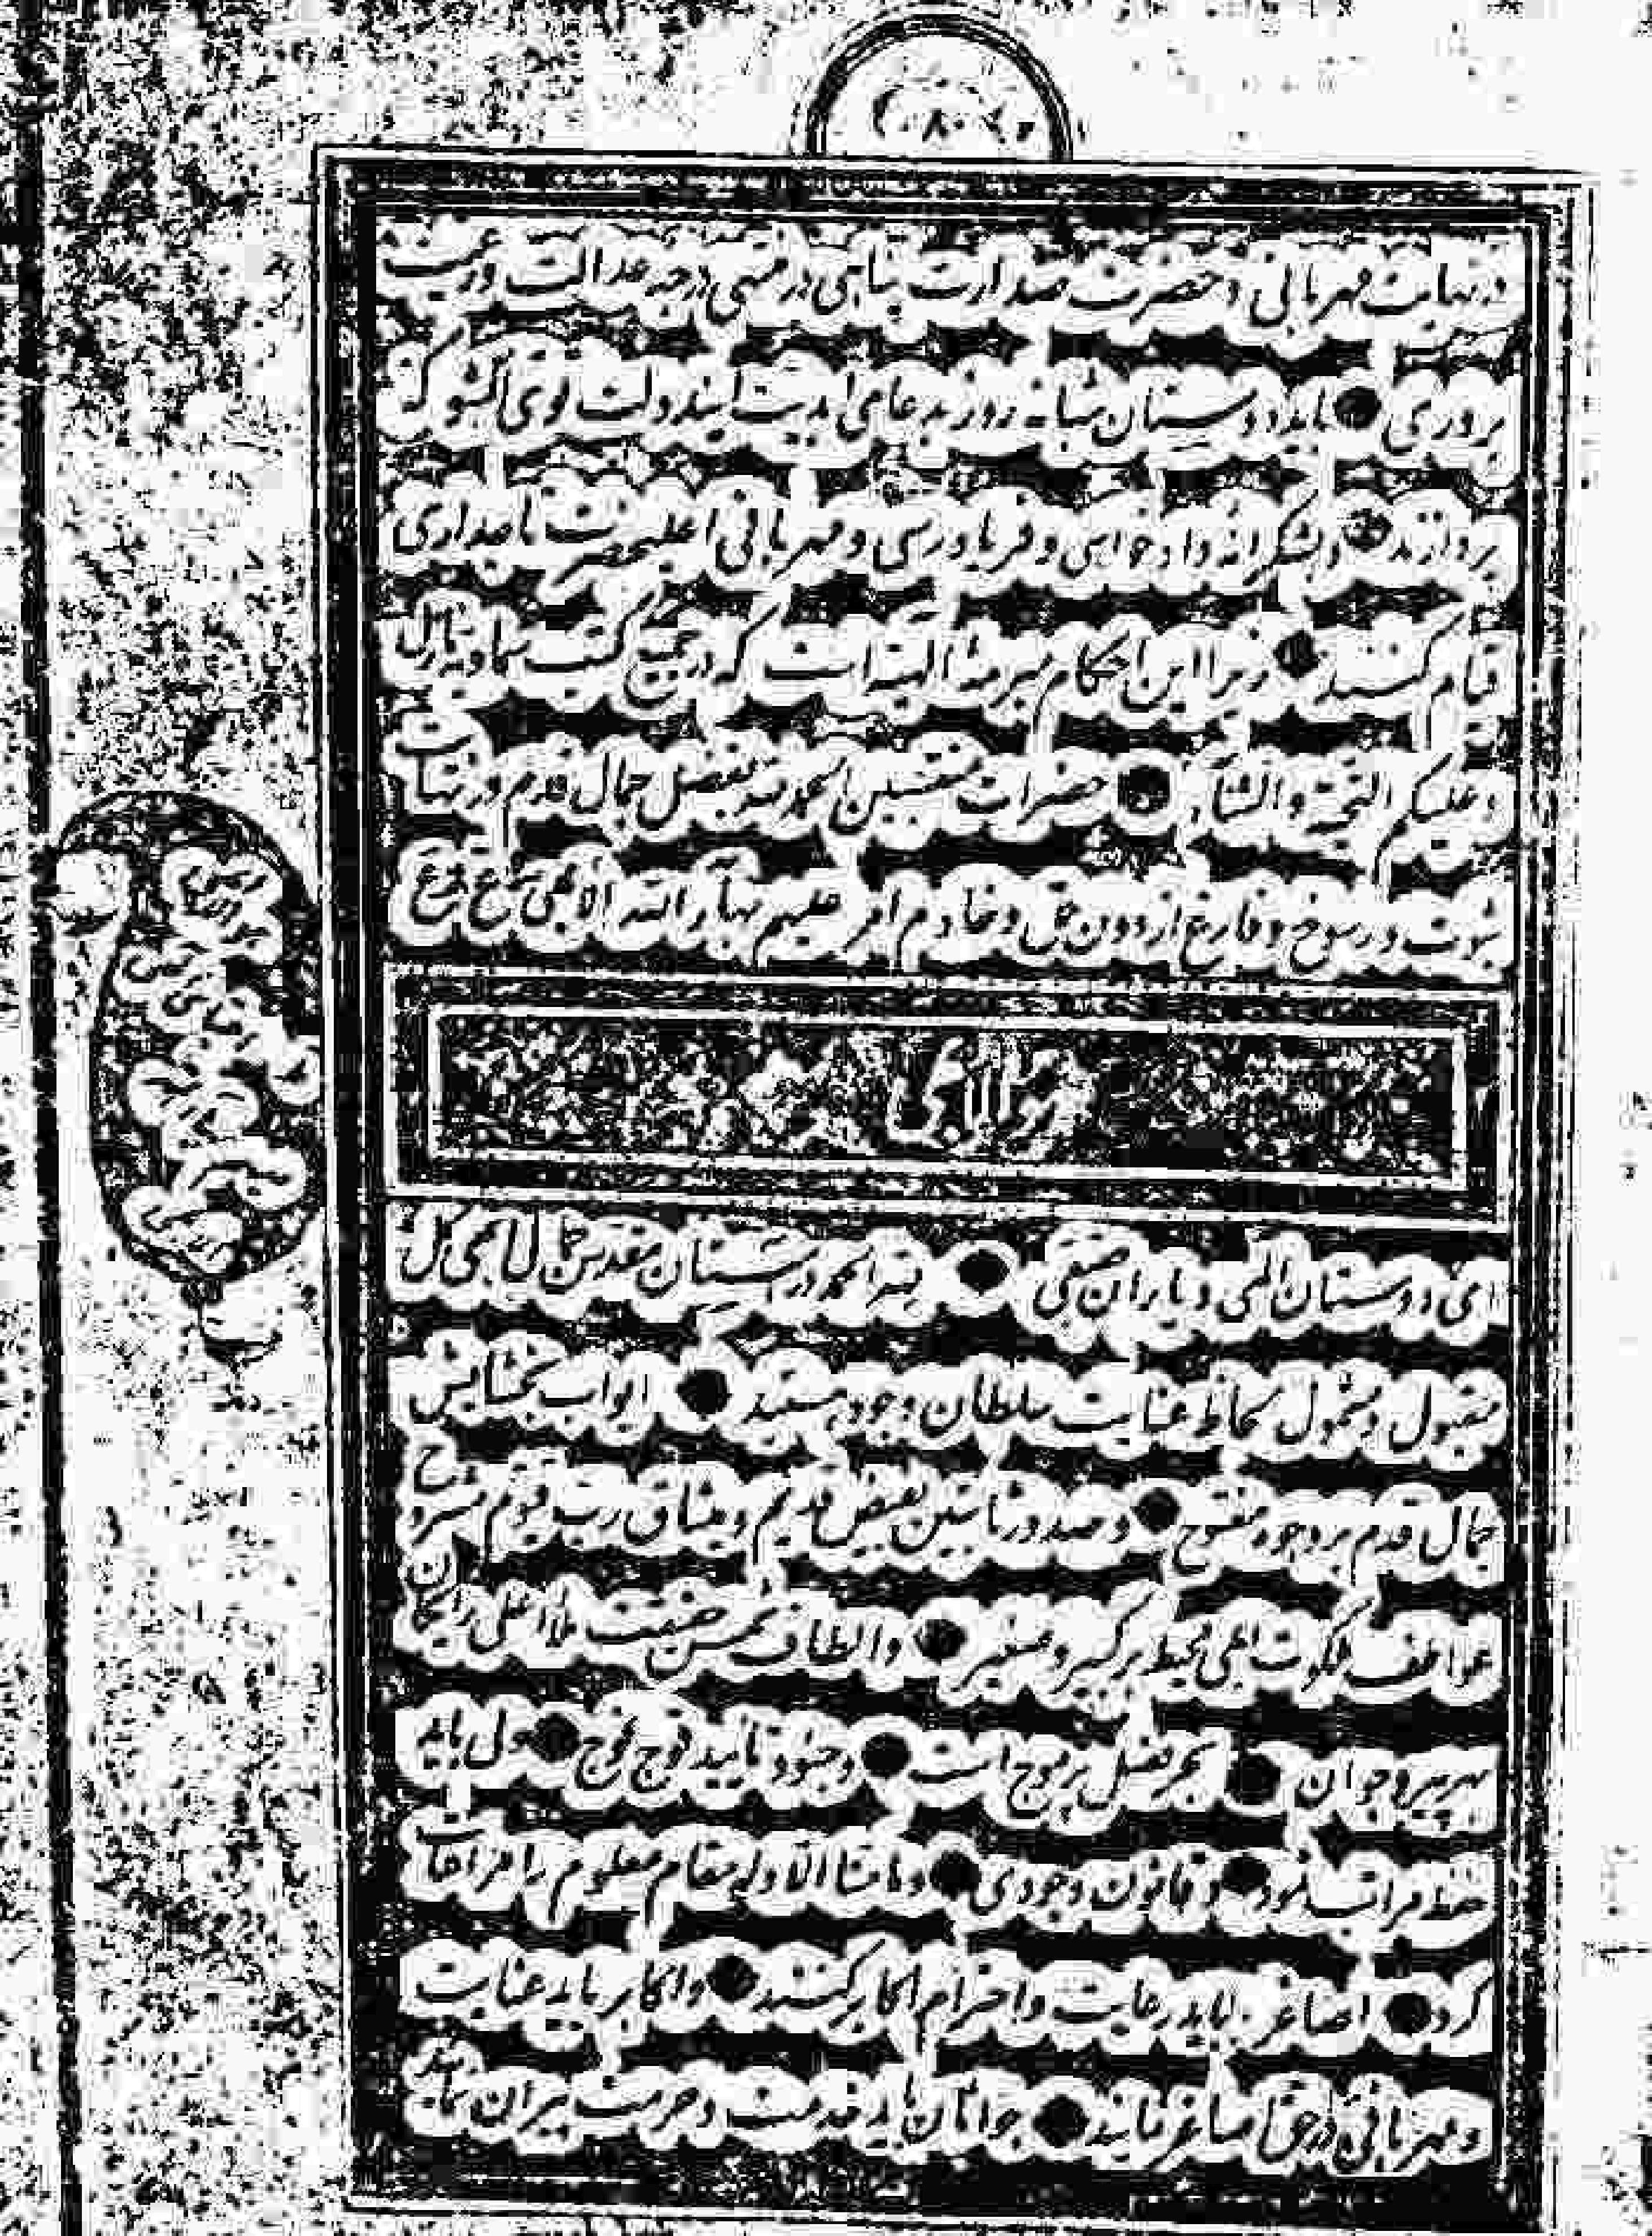 در نهایت مهربانی و حضرت صدارت پناهی در منتهی درجه عدالت و رعیت
پروری باید دوستان شبانه روز بدعای ابدیت ایندولت قوی الشوکه
پردازند و بشکرانه دادخواهی و فریادرسی و مهربانی اعلیحضرت تاجداری
قیام کنند زیرا این احکام مبرمه الهیه است که در جمیع کتب سماویه نازل
و علیکم التحیة و الثناء حضرات منتسبین الحمد لله بفضل جمال قدم در نهایت
ثبوت و رسوخ و فارغ از دون حق و خادم امر علیهم بهآء الله الابهی ع ع
هو الابهی
ای دوستان الهی و یاران حقیقی لله الحمد در آستان مقدس جمال ابهی کل
مقبول و مشمول لحاظ عنایت سلطان وجود هستید ابواب بخشایش
جمال قدم بر وجوه مفتوح و صدور ثابتین بفیض قدیم و میثاق رب قیوم مشروح
عواطف ملکوت ابهی محیط بر کبیر و صغیر و الطاف شمس حقیقت ملأ اعلی رایگان
بهر پیر و جوان بحر فضل پر موج است و جنود تأیید فوج فوج ولی باید
حفظ مراتب نمود و قانون وجودی و ما منا الا و له مقام معلوم را مراعات
کرد اصاغر باید رعایت و احترام اکابر کنند و اکابر باید عنایت
و مهربانی در حق اصاغر نمایند جوانان باید خدمت و حرمت پیران نمایند